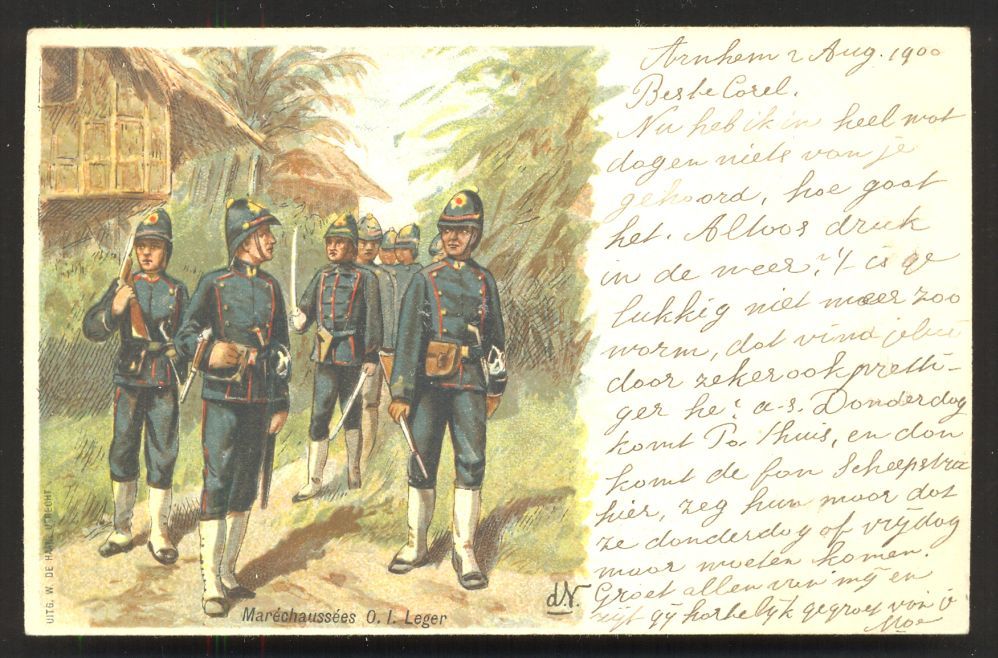 Arnhem 2 Aug. 1900
Beste Corel.
Nu heb ik in heel wat
dagen niets van je
gehoord, hoe gaat
het. Altoos druk
in de weer? 't is ge
lukkig niet meer zoo
warm, dat vind jelui
daar zeker ook pretti-
ger he? a.s. Donderdag
komt Pa thuis, en dan
komt de fam
hier, zeg hun maar dat
ze donderdag of vrijdag
maar moeten komen.
Groet allen van mij en
zijt gij hartelijk gegroet van je
Moe
Maréchaussées O. I. Leger
d.V.
UITG. W. DE HAAN, UTRECHT